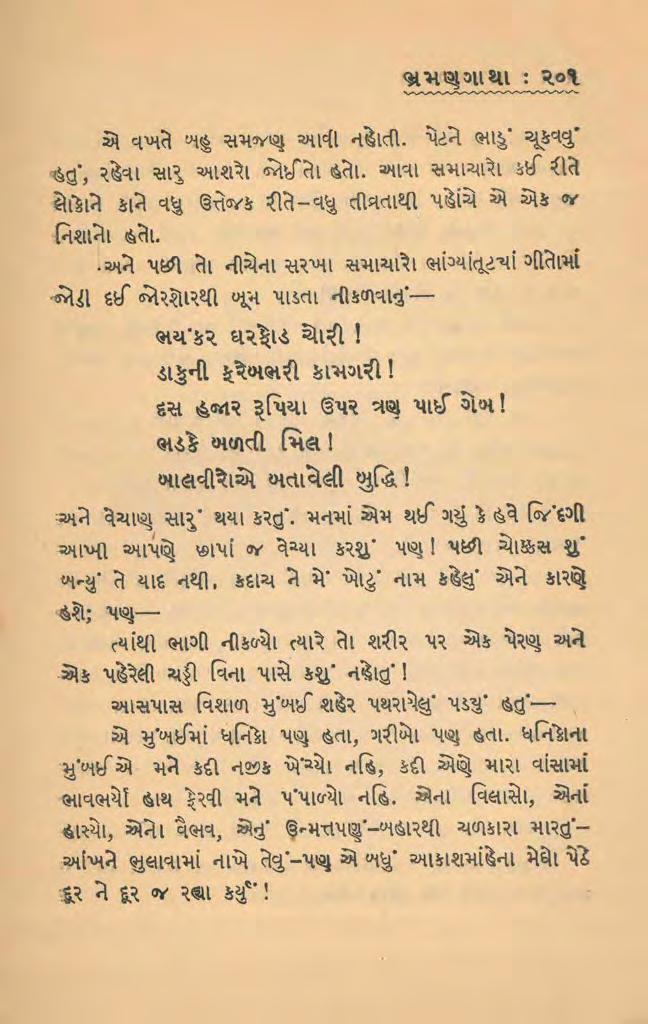 ભ્રમણગાથા : ૨૦૧
એ વખતે બહુ સમજણ આવી નહોતી. પેટને ભાડું ચૂકવવું
હતું, રહેવા સારુ આશરો જોઈતો હતો. આવા સમાચારો કઈ રીતે
લોકોને કાને વધુ ઉત્તેજક રીતે–વધુ તીવ્રતાથી પહોંચે એ એક જ
નિશાનો હતો.
અને પછી તો નીચેના સરખા સમાચારો ભાંગ્યાંતૂટ્યાં ગીતોમાં
જોડી દઈ જોરશોરથી બૂમ પાડતા નીકળવાનું—
ભયંકર ઘરફોડ ચોરી !
ડાકુની ફરેબભરી કામગરી !
દસ હજાર રૂપિયા ઉપર ત્રણ પાઈ ગેબ !
ભડકે બળતી મિલ !
બાલવીરોએ બતાવેલી બુદ્ધિ !
અને વેચાણ સારું થયા કરતું. મનમાં એમ થઈ ગયું કે હવે જિંદગી
આખી આપણે છાપાં જ વેચ્યા કરશું પણ ! પછી ચોક્કસ શું
બન્યું તે યાદ નથી. કદાચ ને મેં ખોટું નામ કહેલું એને કારણે
હશે; પણ—
ત્યાંથી ભાગી નીકળ્યો ત્યારે તો શરીર પર એક પેરણ અને
એક પહેરેલી ચડ્ડી વિના પાસે કશું નહોતું !
આસપાસ વિશાળ મુંબઈ શહેર પથરાયેલું પડ્યું હતું—
એ મુંબઈમાં ધનિકો પણ હતા, ગરીબો પણ હતા. ધનિકોના
મુંબઈએ મને કદી નજીક ખેંચ્યો નહિ, કદી એણે મારા વાંસામાં
ભાવભર્યો હાથ ફેરવી મને પંપાળ્યો નહિ. એના વિલાસો, એનાં
હાસ્યો, એનો વૈભવ, એનું ઉન્મત્તપણું–બહારથી ચળકારા મારતું–
આંખને ભુલાવામાં નાખે તેવું–પણ એ બધું આકાશમાંહેના મેઘો પેઠે
દૂર ને દૂર જ રહ્યા કર્યું !